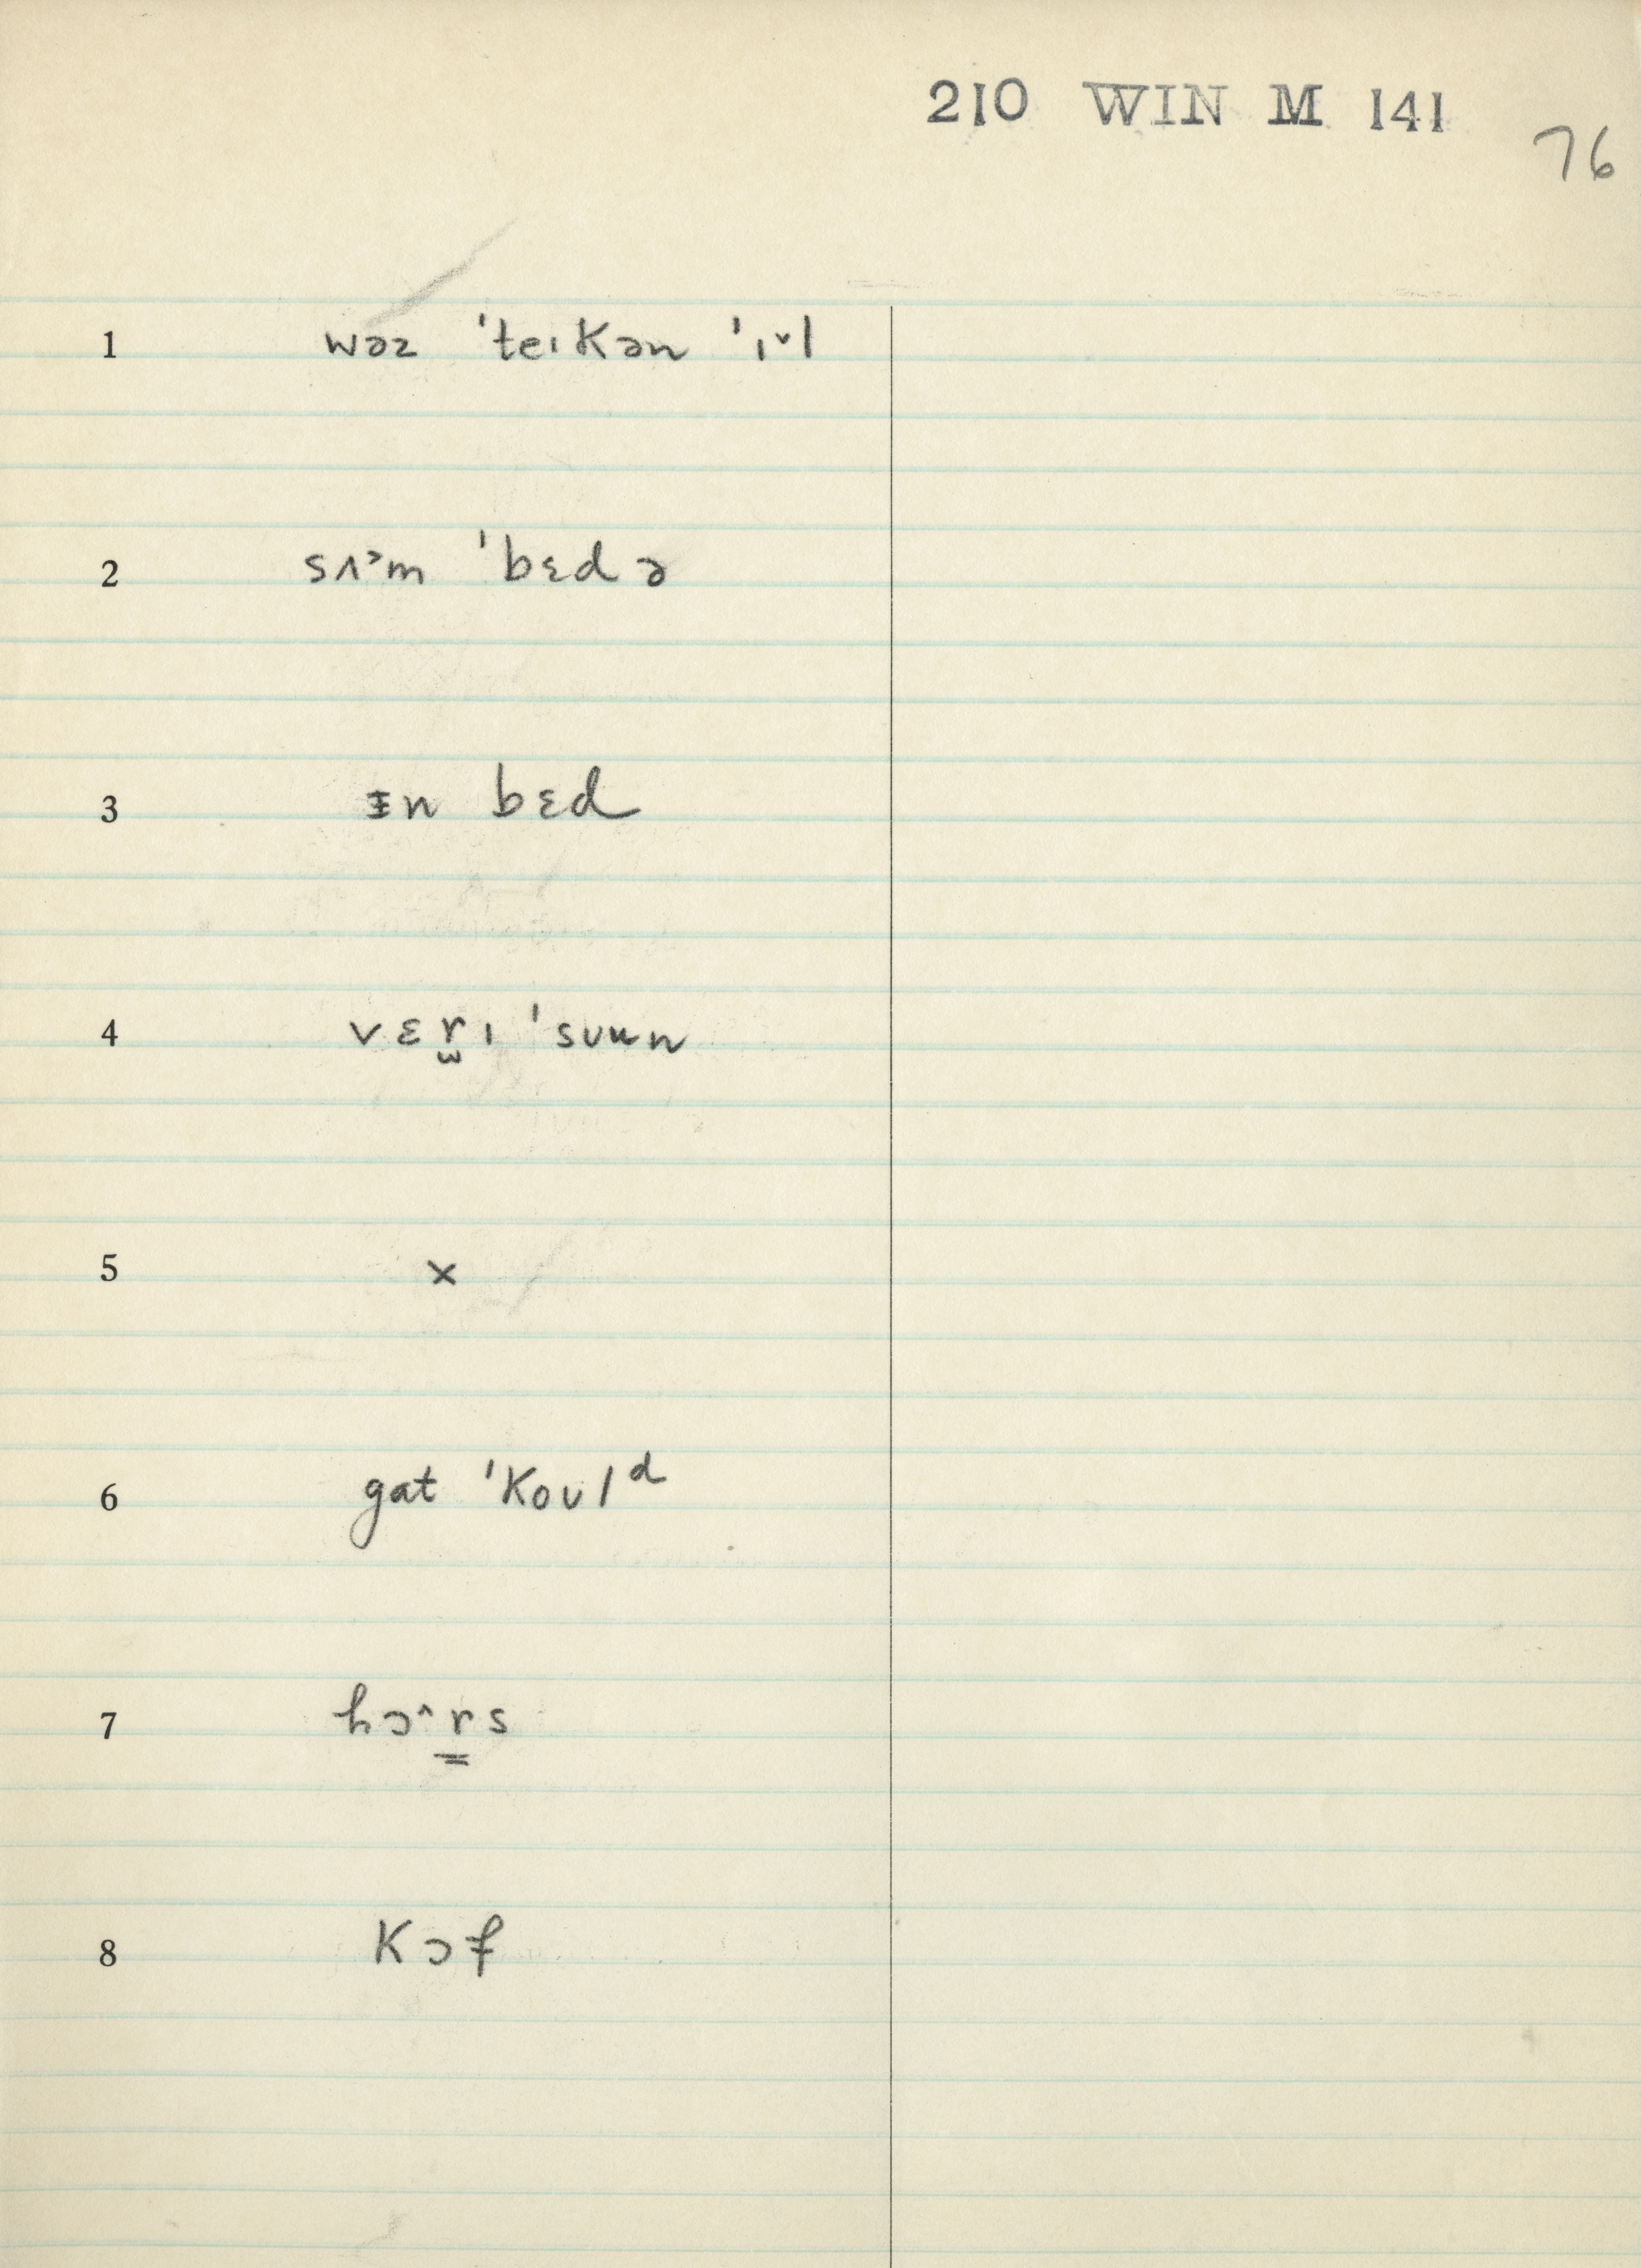 210 WIN M 141
76
1 wəz ˈteɩkən ˈɩ˅l
2 sʌ˃m ˈbɛdə
3 ᵻn bɛd
4 vɛr̫ɩ ˈsᴜun
5 x
6 gat ˈkoᴜlᵈ
7 hɔ˄r̳s
8 kɔf